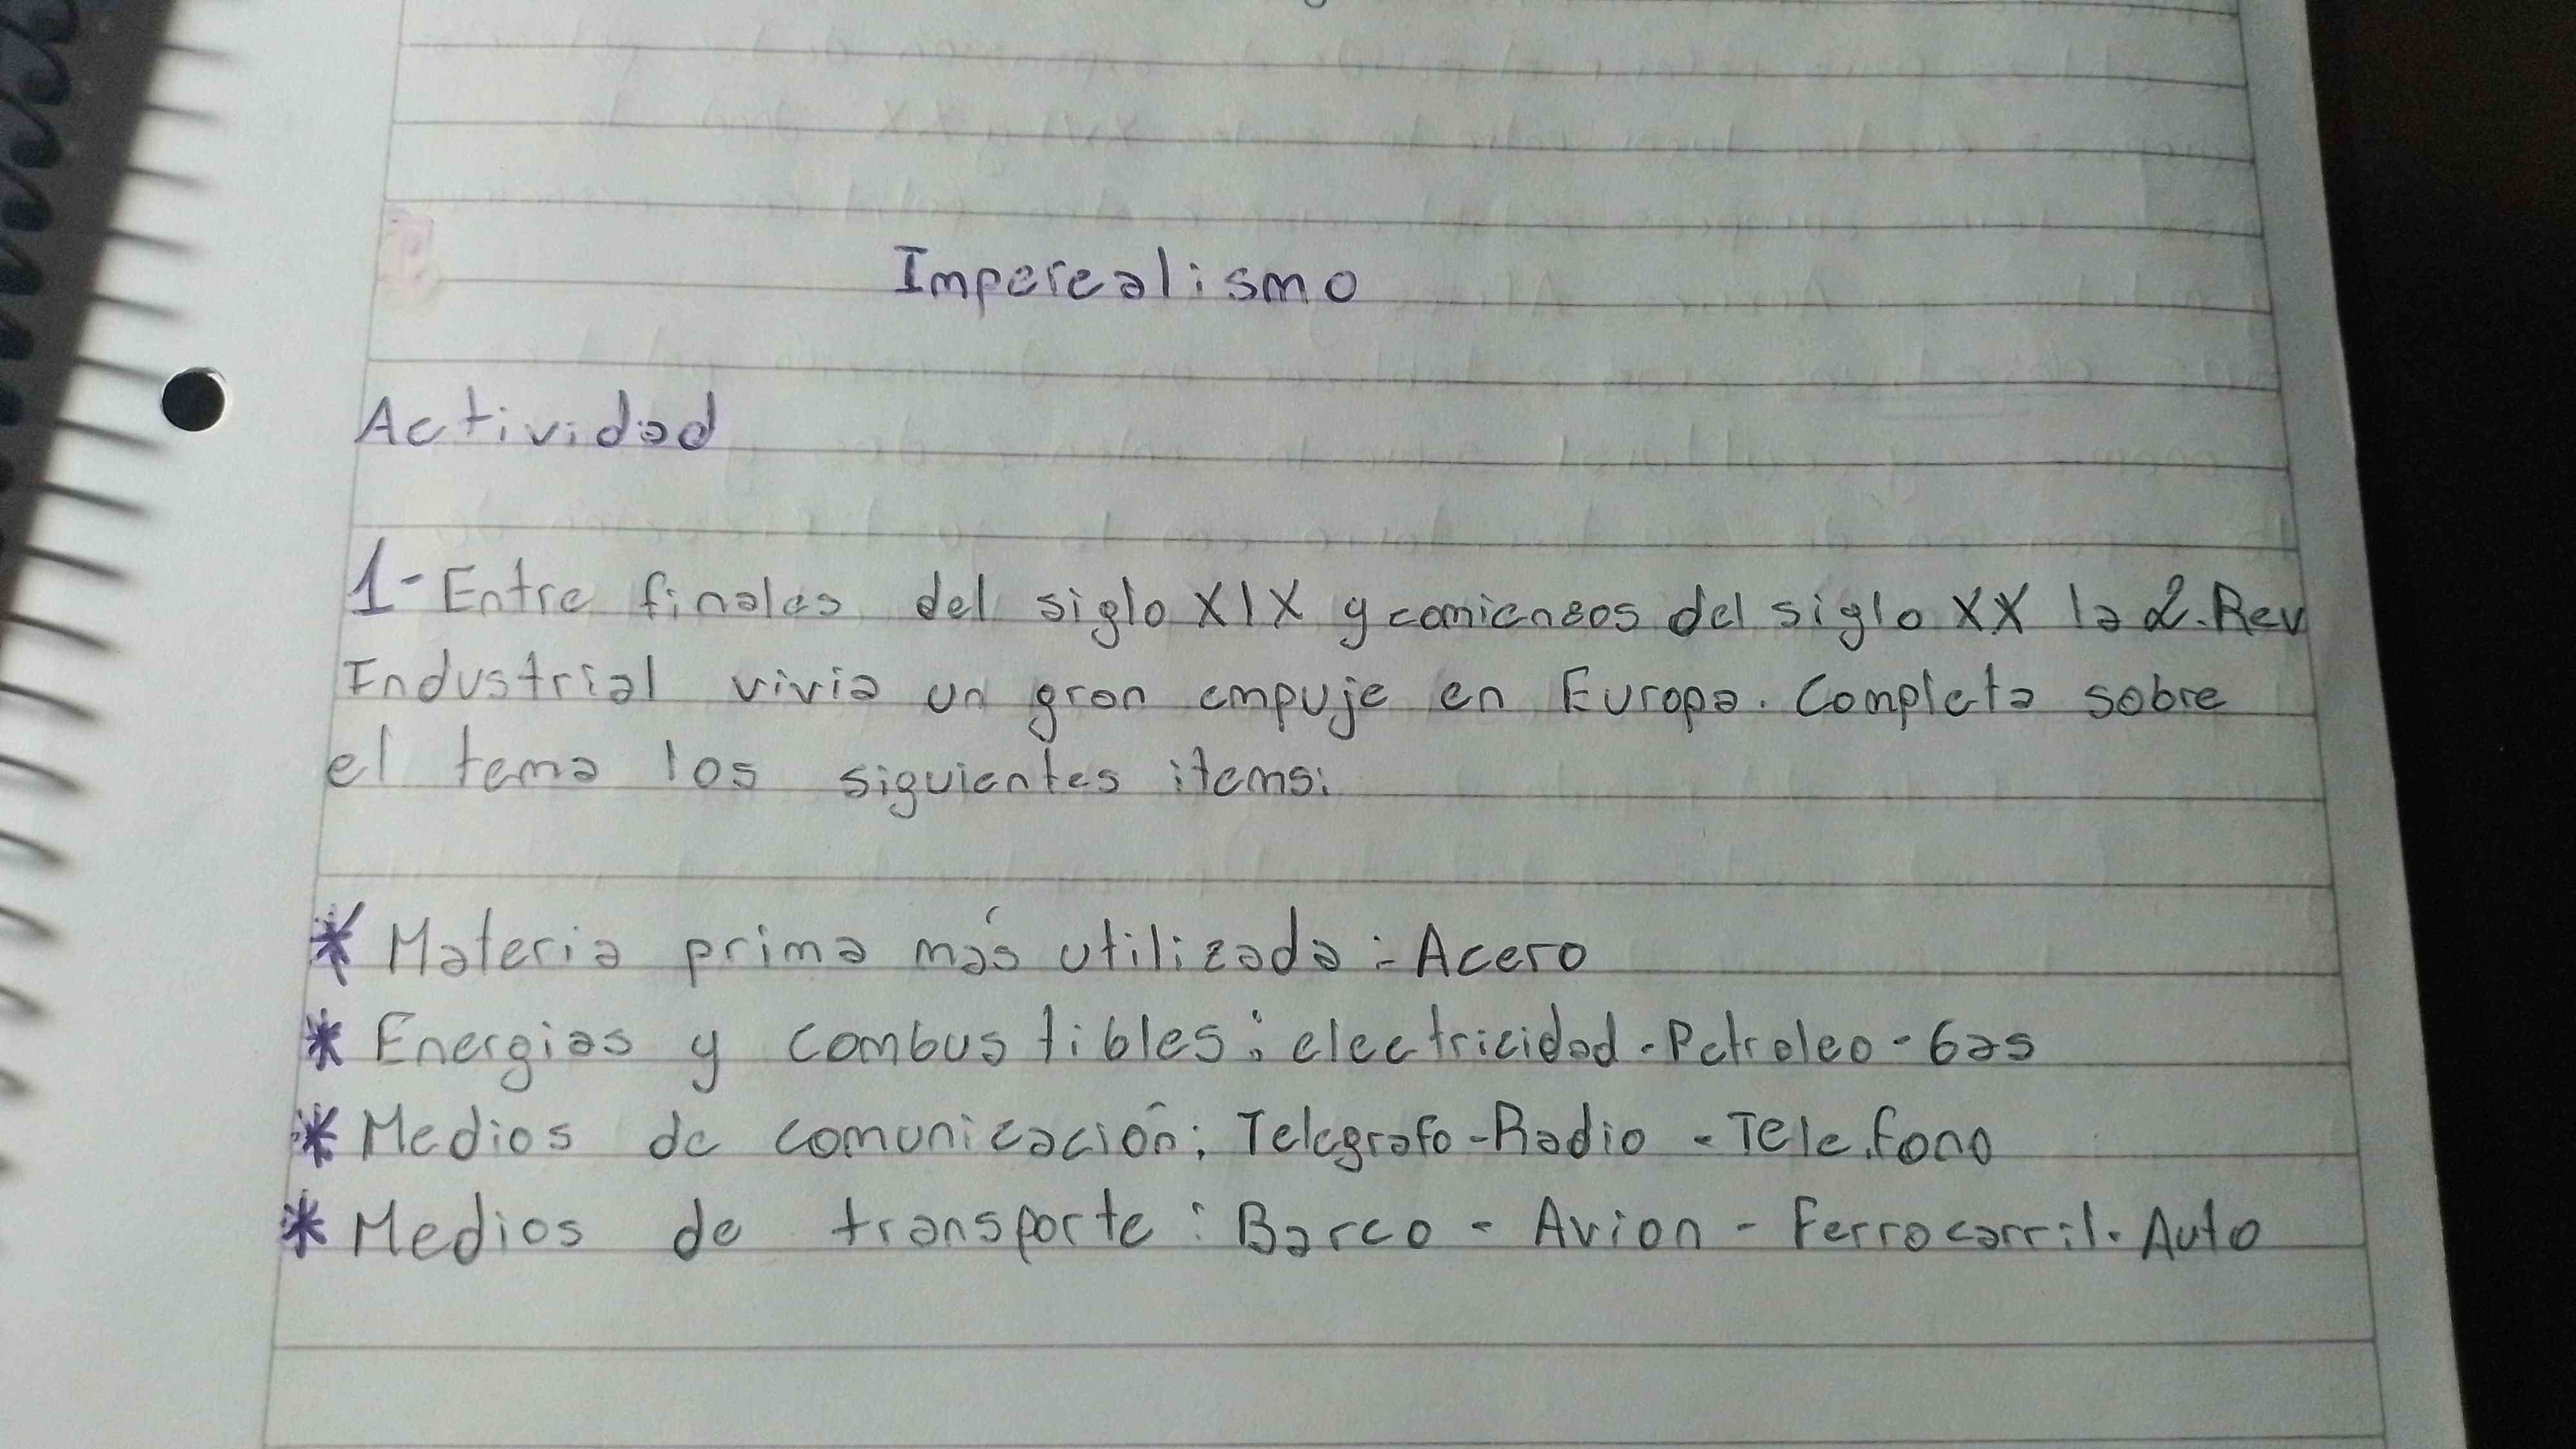 Imperealismo
Actividad
1- Entre finales del siglo XIX y comiensos del siglo XX la 2. Rev
Industrial vivia un gran empuje en Europa. Completa sobre
el tema los siguientes items:
* Materia prima más utilizada :- Acero
* Energias y combustibles : electricidad - Petroleo - Gas
* Medios de comunicación : Telegrafo - Radio - Telefono
* Medios de transporte : Barco - Avion - Ferrocarril - Auto